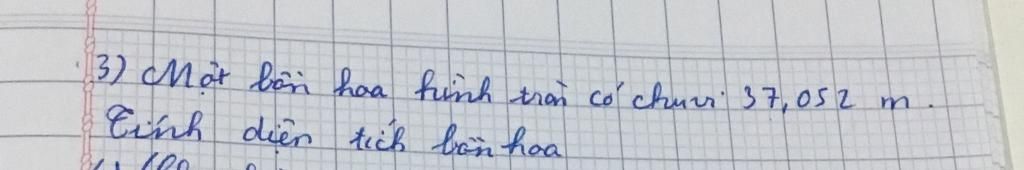 3) Một bồn hoa hình tròn có chu vi 37,052 m.
Tính diện tích bồn hoa